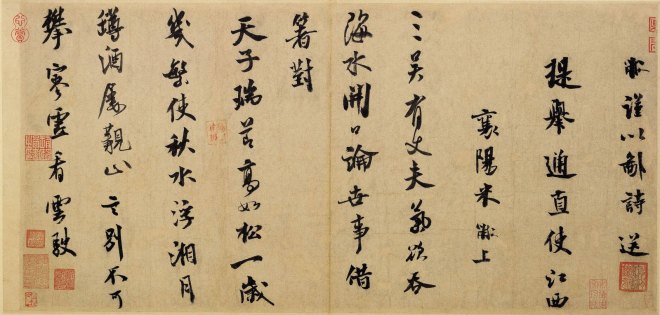 黻謹以鄙詩送
提舉通直使江西
襄陽米黻上
三吳有丈夫氣欲吞
海水開口論世事借
箸對
天子瑞節高如松一歲
幾繁使秋水浮湘月
罇酒屬觀山言別不可
攀寒雲看雲馭